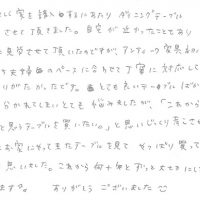 として家を購入するにあたり ダイニングテーブル
させて頂きました。自宅が近かったこともあり
見学させて頂いたのですが、アンティーク家具初
夫婦のペースに合わせて丁寧に対応し
りがたかったです。とても良いテーブルばか
分かれてしまいとても悩みましたが、「これから
と思うテーブルを買いたい。」と思いじっくり考えさせ
お家にやってきたテーブルを見て やっぱり買って
思いました。これから何十年とずっと大切にして
ます。 ありがとうございました